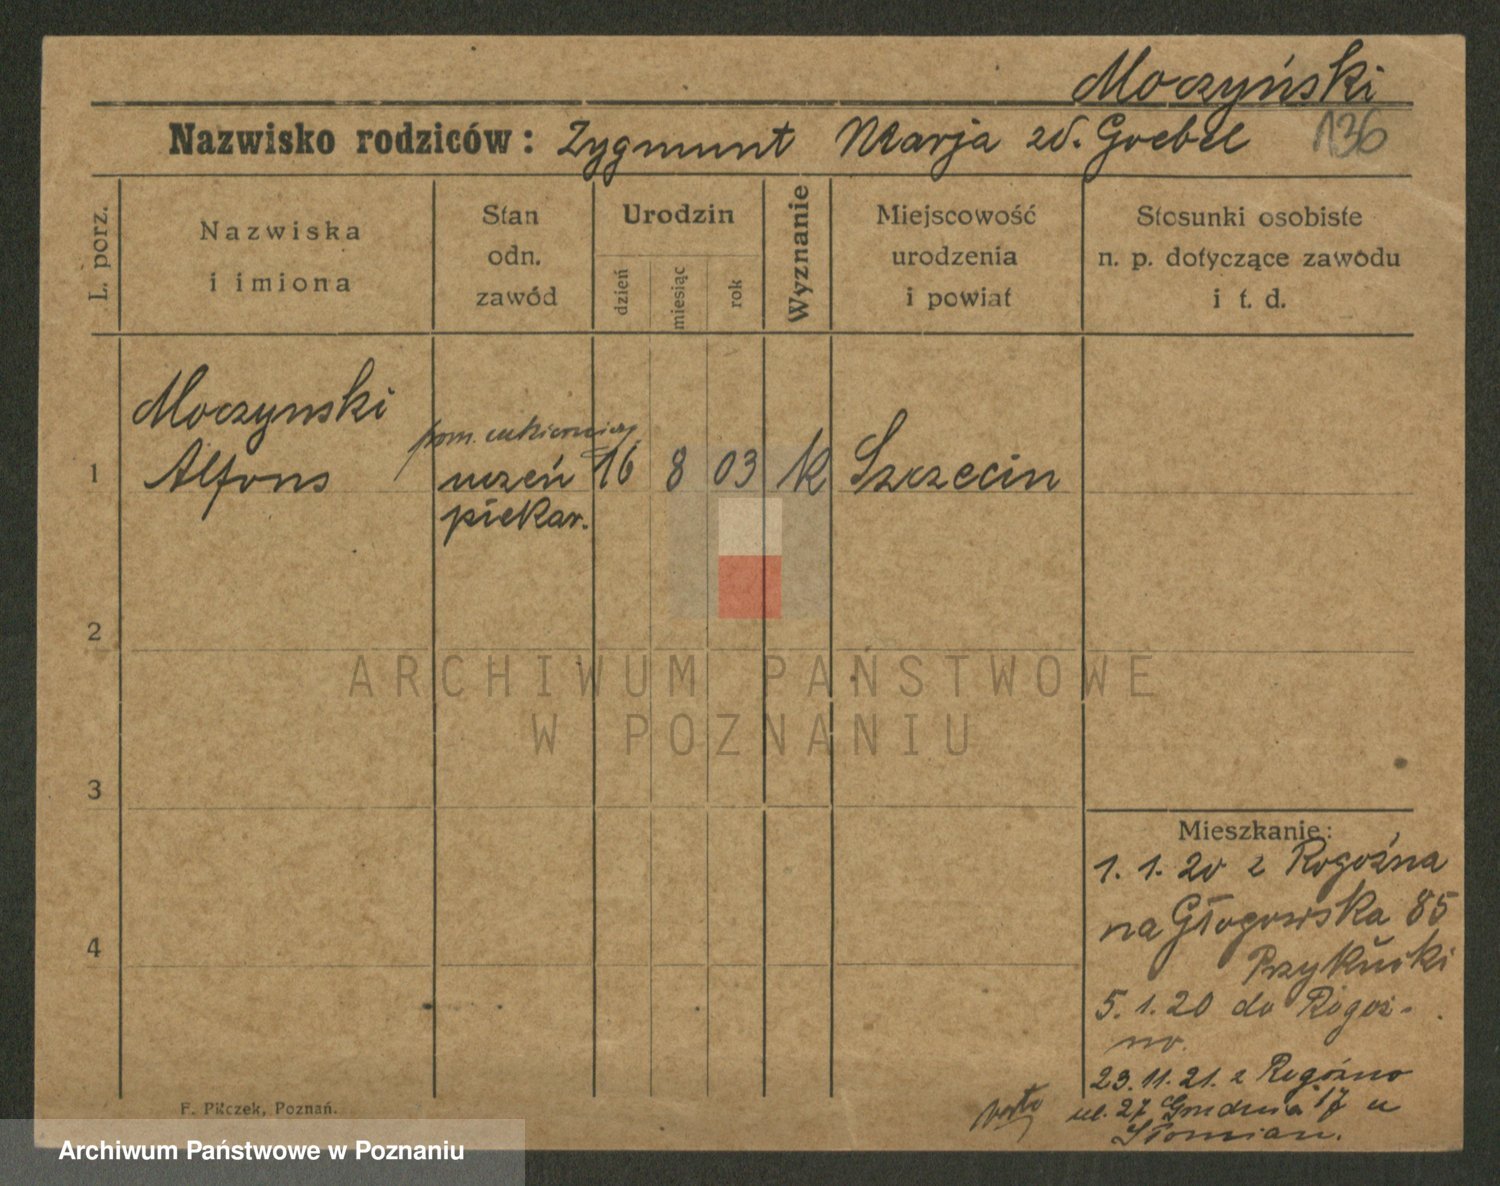 Moczyński
Nazwisko rodziców: Zygmunt Marja zd. Goebel 136
L. porz.
Nazwiska
i imiona
Stan
odn.
zawód
Urodzin
dzień
miesiąc
rok
Wyznanie
Miejscowość
urodzenia
i powiat
Stosunki osobiste
n. p. dotyczące zawodu
i t. d.
Moczynski
pom. cukiernicz.
1 Alfons uczeń 16 8 03 k Szczecin
piekar.
2
3
4
Mieszkanie:
1. 1. 20 z Rogoźna
na Głogowska 85
5. 1. 20 do Rogoź-
no.
23. 11. 21. z Rogoźno
ul. 27 Grudnia 17 u
verte
F. Pilczek, Poznań.
ARCHIWUM PAŃSTWOWE
W POZNANIU
Archiwum Państwowe w Poznaniu